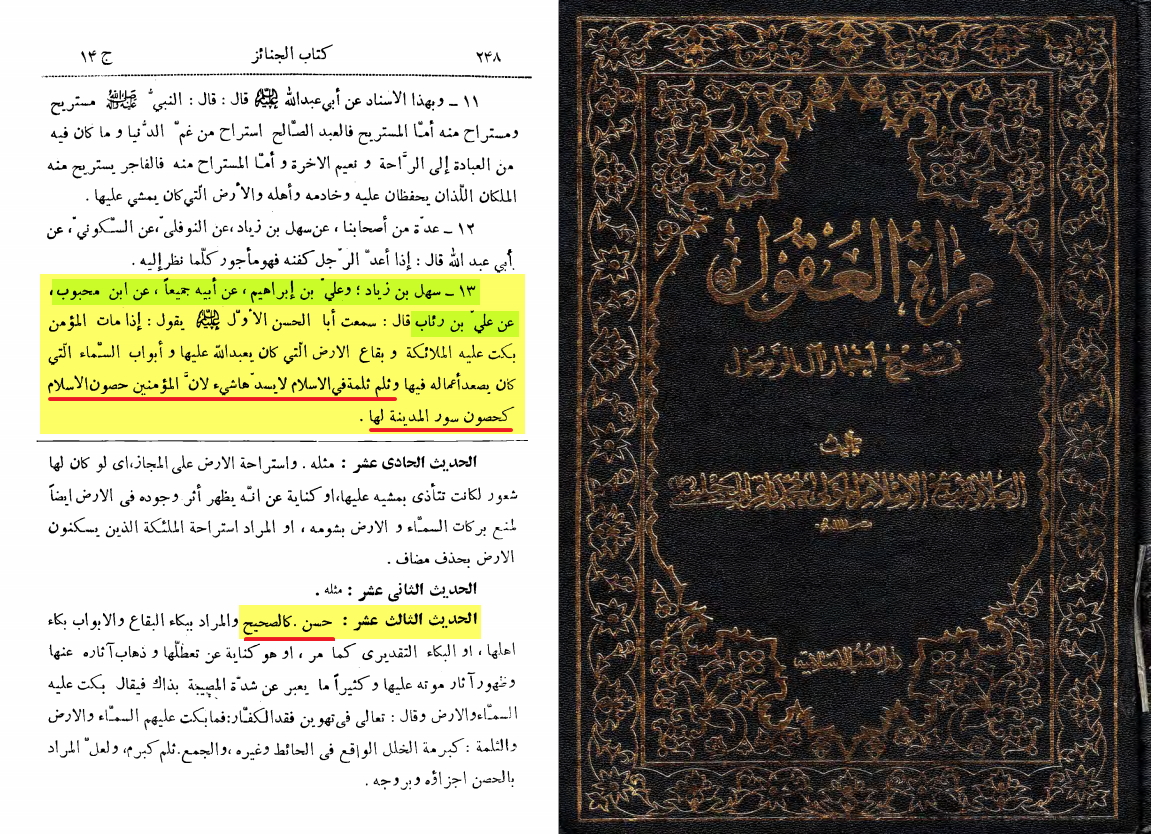 ٢٤٨ كتاب الجنائز ج ١٤
١١ ـ وبهذا الاسناد عن أبي عبدالله عليه السلام قال : قال : النبيّ صلى الله عليه وآله مستريح
ومستراح منه أمّا المستريح فالعبد الصّالح استراح من غمّ الدّنيا و ما كان فيه
من العبادة إلى الرّاحة و نعيم الاخرة و أمّا المستراح منه فالفاجر يستريح منه
الملكان اللّذان يحفظان عليه وخادمه وأهله والأرض الّتي كان يمشي عليها .
١٢ ـ عدّة من أصحابنا ، عن سهل بن زياد ، عن النوفليّ ، عن السّكونيّ ، عن
أبي عبد الله قال : إذا أعدّ الرّجل كفنه فهو مأجور كلّما نظر إليه .
١٣ ـ سهل بن زياد ؛ وعليّ بن إبراهيم ، عن أبيه جميعاً ، عن ابن محبوب ،
عن عليّ بن رئاب قال : سمعت أبا الحسن الأوّل عليه السلام يقول : إذا مات المؤمن
بكت عليه الملائكة و بقاع الارض الّتي كان يعبدالله عليها و أبواب السّماء الّتي
كان يصعد أعماله فيها وثلم ثلمة في الاسلام لا يسدّها شيء لانّ المؤمنين حصون الاسلام
كحصون سور المدينة لها .
الحديث الحادى عشر : مثله . واستراحة الارض على المجاز ، اى لو كان لها
شعور لكانت تتأذى بمشيه عليها ، او كناية عن انّه يظهر أثر وجوده فى الارض ايضاً
لمنع بركات السمّاء و الارض بشومه ، او المراد استراحة الملئكة الذين يسكنون
الارض بحذف مضاف .
الحديث الثانى عشر : مثله .
الحديث الثالث عشر : حسن . كالصحيح والمراد ببكاء البقاع والابواب بكاء
اهلها ، او البكاء التقديرى كما مر ، او هو كناية عن تعطّلها و ذهاب آثاره عنها
وظهور آثار موته عليها و كثيراً ما يعبر عن شدّة المصيبة بذاك فيقال بكت عليه
السمّاء والارض وقال : تعالى فى تهوين فقد الكفّار : فما بكت عليهم السمّاء والارض
والثلمة : كبرمة الخلل الواقع فى الحائط وغيره ، والجمع . ثلم كبرم ، ولعلّ المراد
بالحصن اجزاؤه وبروجه .
مرآة العقول
في شرح أخبار آل الرسول
تأليف
دار الكتب الاسلامية